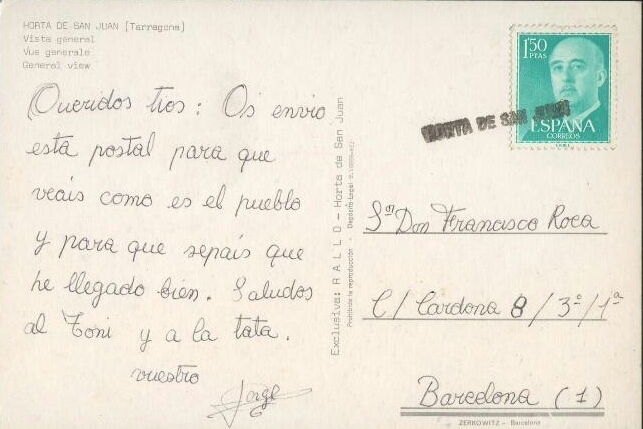 HORTA DE SAN JUAN (Tarragona)
Vista general
Vue generale
General view
Queridos tíos: Os envio
esta postal para que
veáis como es el pueblo
y para que sepáis que
he llegado bien. Saludos
al Toni y a la tata.
vuestro
Jorge
Exclusiva: RALLO - Horta de San Juan
Prohibida la reproducción - Depósito Legal
1'50
PTAS
ESPAÑA
CORREOS
HORTA DE SAN JUAN
Sr Don Francisco Roca
C/ Cardona 8 / 3º / 1ª
Barcelona (1)
ZERKOWITZ - Barcelona